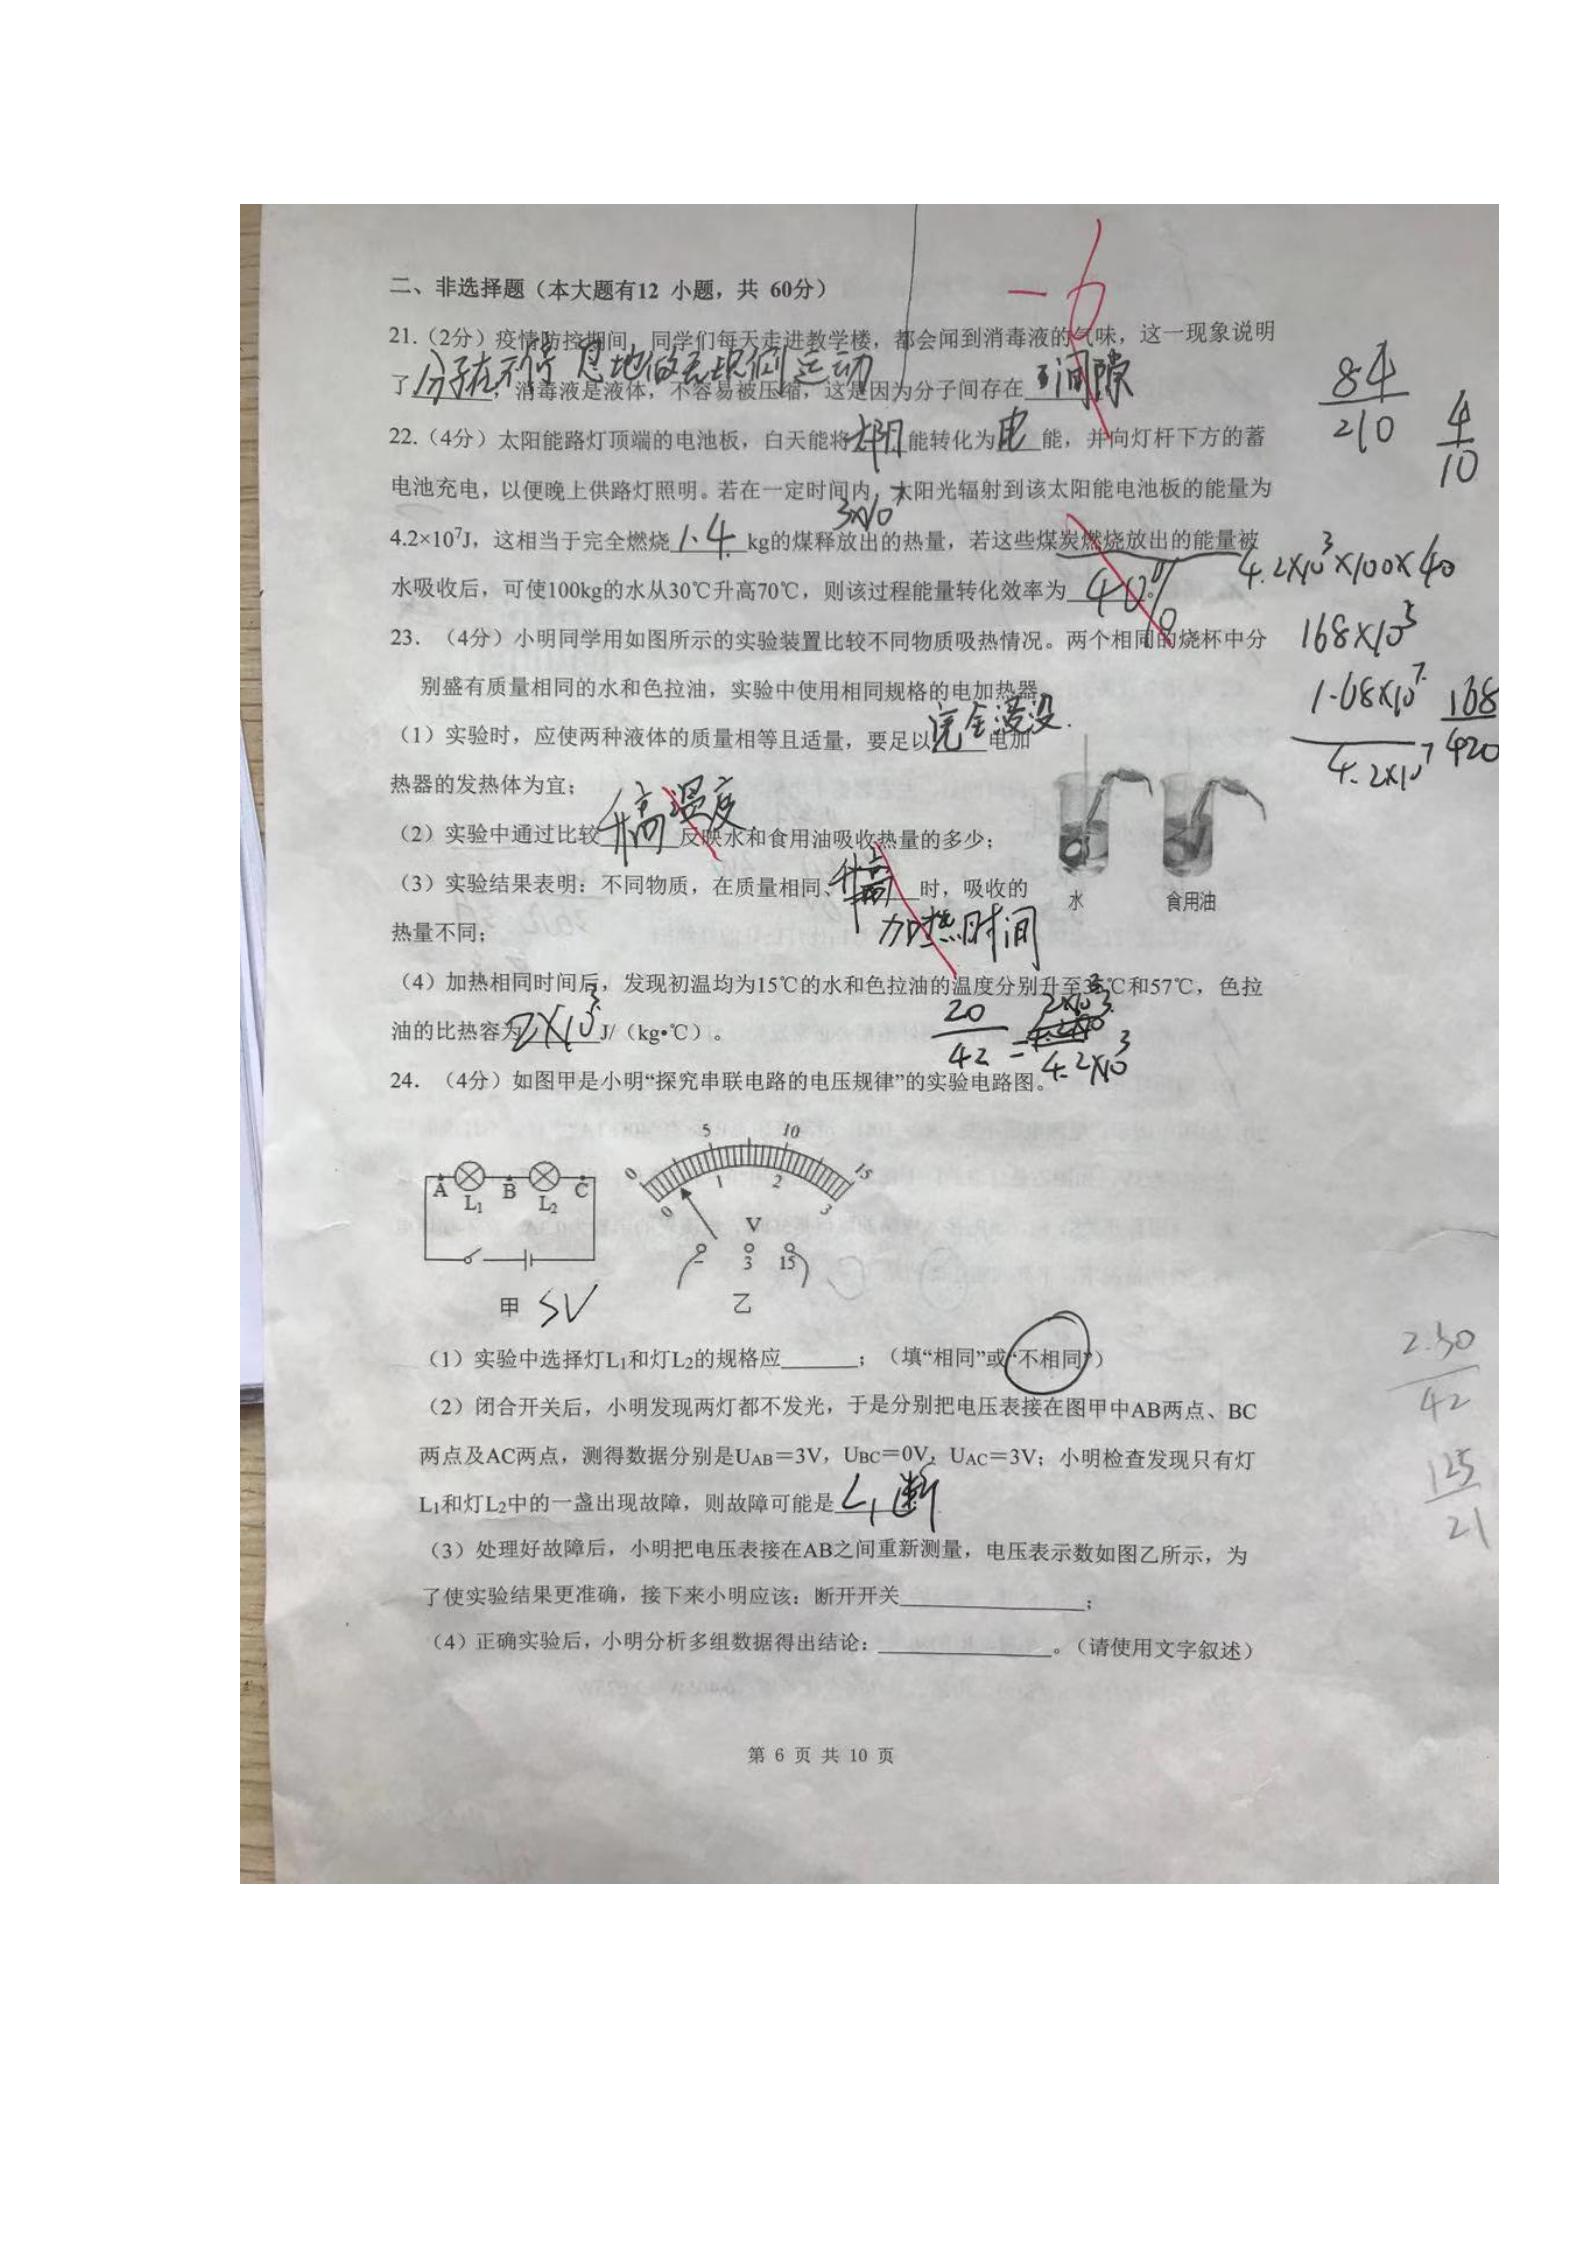 二、非选择题（本大题有12 小题，共 60分）
-6
21.（2分）疫情防控期间，同学们每天走进教学楼，都会闻到消毒液的气味，这一现象说明
分子在不停息地做无规则运动
了______，消毒液是液体，不容易被压缩，这是因为分子间存在 间隙
84
210
4
10
22.（4分）太阳能路灯顶端的电池板，白天能将太阳能转化为电能，并向灯杆下方的蓄
电池充电，以便晚上供路灯照明。若在一定时间内，太阳光辐射到该太阳能电池板的能量为
3×10⁷
4.2×10⁷J，这相当于完全燃烧1.4kg的煤释放出的热量，若这些煤炭燃烧放出的能量被
4.2×10³×100×40
水吸收后，可使100kg的水从30℃升高70℃，则该过程能量转化效率为40%。
168×10⁵
1.68×10⁷
4.2×10⁷
168
420
23.（4分）小明同学用如图所示的实验装置比较不同物质吸热情况。两个相同的烧杯中分
别盛有质量相同的水和色拉油，实验中使用相同规格的电加热器
（1）实验时，应使两种液体的质量相等且适量，要足以完全浸没电加
热器的发热体为宜；
（2）实验中通过比较升高温度反映水和食用油吸收热量的多少；
（3）实验结果表明：不同物质，在质量相同、升高______时，吸收的
加热时间
热量不同；
水 食用油
（4）加热相同时间后，发现初温均为15℃的水和色拉油的温度分别升至35℃和57℃，色拉
油的比热容为2×10³J/（kg•℃）。
20
42
=
2×10³
4.2×10³
24.（4分）如图甲是小明“探究串联电路的电压规律”的实验电路图。
A L₁ B L₂ C
甲 5V
0 5 10 15
0 1 2 3
V
- 3 15
乙
（1）实验中选择灯L₁和灯L₂的规格应______；（填“相同”或“不相同”）
（2）闭合开关后，小明发现两灯都不发光，于是分别把电压表接在图甲中AB两点、BC
两点及AC两点，测得数据分别是UAB＝3V，UBC＝0V，UAC＝3V；小明检查发现只有灯
L₁和灯L₂中的一盏出现故障，则故障可能是L₁断
（3）处理好故障后，小明把电压表接在AB之间重新测量，电压表示数如图乙所示，为
了使实验结果更准确，接下来小明应该：断开开关______________；
（4）正确实验后，小明分析多组数据得出结论：______________。（请使用文字叙述）
42
125
21
第 6 页 共 10 页